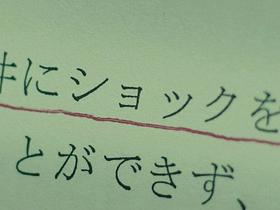 にショックを
とができず、